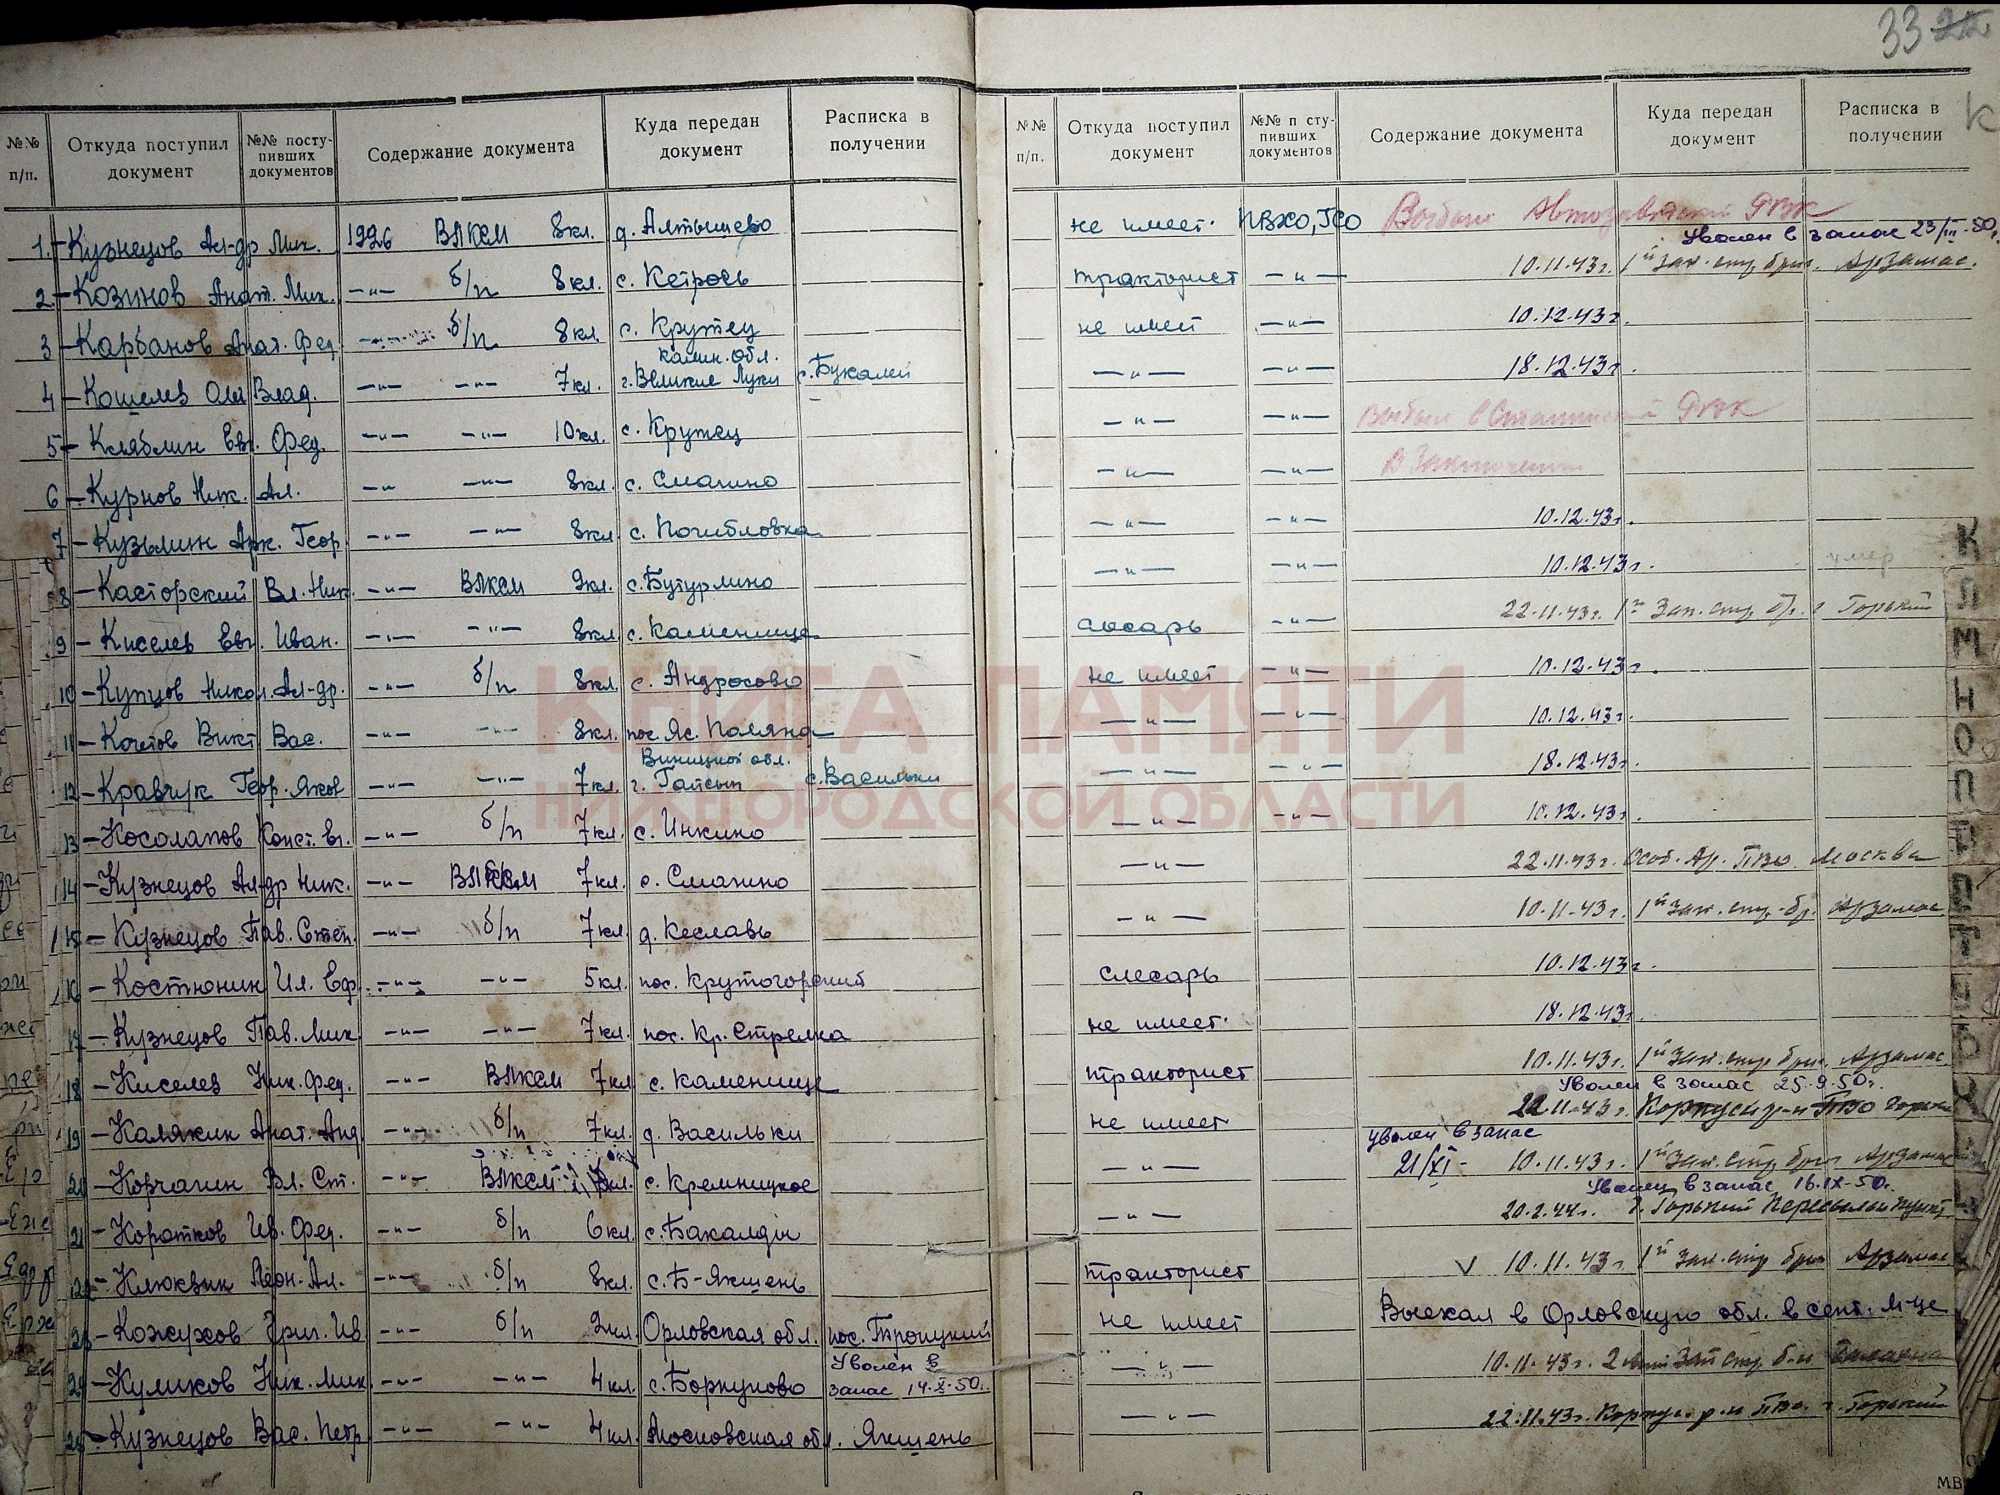 33 22
К
№№ п/п.
Откуда поступил документ
№№ поступивших документов
Содержание документа
Куда передан документ
Расписка в получении
№№ п/п.
Откуда поступил документ
№№ п сту-пивших документов
Содержание документа
Куда передан документ
Расписка в получении
1. Кузнецов Ал-др Мих. 1926 ВЛКСМ 8кл. д. Алтышево не имеет. ПВХО, ГСО Выбыл Автозаводский РВК
Уволен в запас 23/III-50г.
2 Козинов Анат. Мих. —"— б/п 8кл. с. Кетрось тракторист —"— 10.11.43г. 1й Зап. стр. бриг. Арзамас.
3 Карбанов Анат. Фед. —"— б/п 8кл. с. Крутец не имеет —"— 10.12.43г.
Калин. обл.
4 Кошелев Влад. —"— —"— 7кл. г. Великие Луки с. Букалей —"— —"— 18.12.43г.
5 Кляблин Евг. Фед. —"— —"— 10кл. с. Крутец —"— —"— Выбыл в Сталинский РВК
6 Курнов Ник. Ал. —"— —"— 8кл. с. Смагино —"— —"— В Заключении
7 Кузьмин Арк. Геор. —"— —"— 8кл. с. Погибловка —"— —"— 10.12.43г.
8 Касторский Вл. Ник. —"— ВЛКСМ 9кл. с. Бутурлино —"— —"— 10.12.43г. умер
9 Киселев Евг. Иван. —"— —"— 8кл. с. Каменище слесарь —"— 22.11.43г. 1й Зап. стр. бр. г Горький
10 Купцов Никол. Ал-др. —"— б/п 8кл. с. Андросово не имеет —"— 10.12.43г.
11 Кочетов Викт Вас. —"— —"— 8кл. пос. Яс. Поляна —"— —"— 10.12.43г.
Виницкой обл.
12 Кравчук Геор. Яков —"— —"— 7кл. г. Гайсин с. Васильки —"— —"— 18.12.43г.
13 Косолапов Конст. Ег. —"— б/п 7кл. с. Инкино —"— —"— 10.12.43г.
14 Кузнецов Ал-др Ник. —"— ВЛКСМ 7кл. с. Смагино —"— 22.11.43г. Особ. Ар. ПВО Москва
15 Кузнецов Пав. Степ. —"— б/п 7кл. д. Кеславь —"— 10.11.43г. 1й Зап. стр. бр. Арзамас
16 Костюнин Ил. Еф. —"— —"— 5кл. пос. Крутогорский слесарь 10.12.43г.
17 Кузнецов Пав. Мих. —"— —"— 7кл. пос. Кр. Стрелка не имеет. 18.12.43г.
18 Киселев Ник. Фед. —"— ВЛКСМ 7кл с. Каменище тракторист 10.11.43г. 1й Зап. стр. бриг. Арзамас
Уволен в запас 25.9.50г.
19 Калякин Анат. Анд —"— б/п 7кл. д. Васильки не имеет 22.11.43г. Корпусн р-н ПВО Горький
уволен в запас
20 Корчагин Вл. Ст. —"— ВЛКСМ 7кл. с. Кремницкое —"— 21/XI- 10.11.43г. 1й Зап. стр. бриг Арзамас
Уволен в запас 16.IX-50г.
21 Коротков Ив. Фед. —"— б/п 6кл с. Бакалды —"— 20.2.44г. г. Горький Пересыльн пункт
22 Клюквин Леон. Ал. —"— б/п 8кл. с. Б-Якшень тракторист V 10.11.43г. 1й Зап. стр бриг Арзамас
23 Кожухов Григ. Ив —"— б/п 2кл. Орловская обл. пос. Троицкий не имеет Выехал в Орловскую обл. в сент. м-це
Уволен в
24 Куликов Ник. Мих. —"— —"— 4кл. с. Борнуково запас 14.X.50г. —"— 10.11.43г. Зап стр
25 Кузнецов Вас. Петр —"— —"— 4кл. Московская обл. Якшень —"— 22.11.43г. Корпус. р-н ПВО. г. Горький
КНИГА ПАМЯТИ
НИЖЕГОРОДСКОЙ ОБЛАСТИ
К
Л
М
Н
О
П
МВ